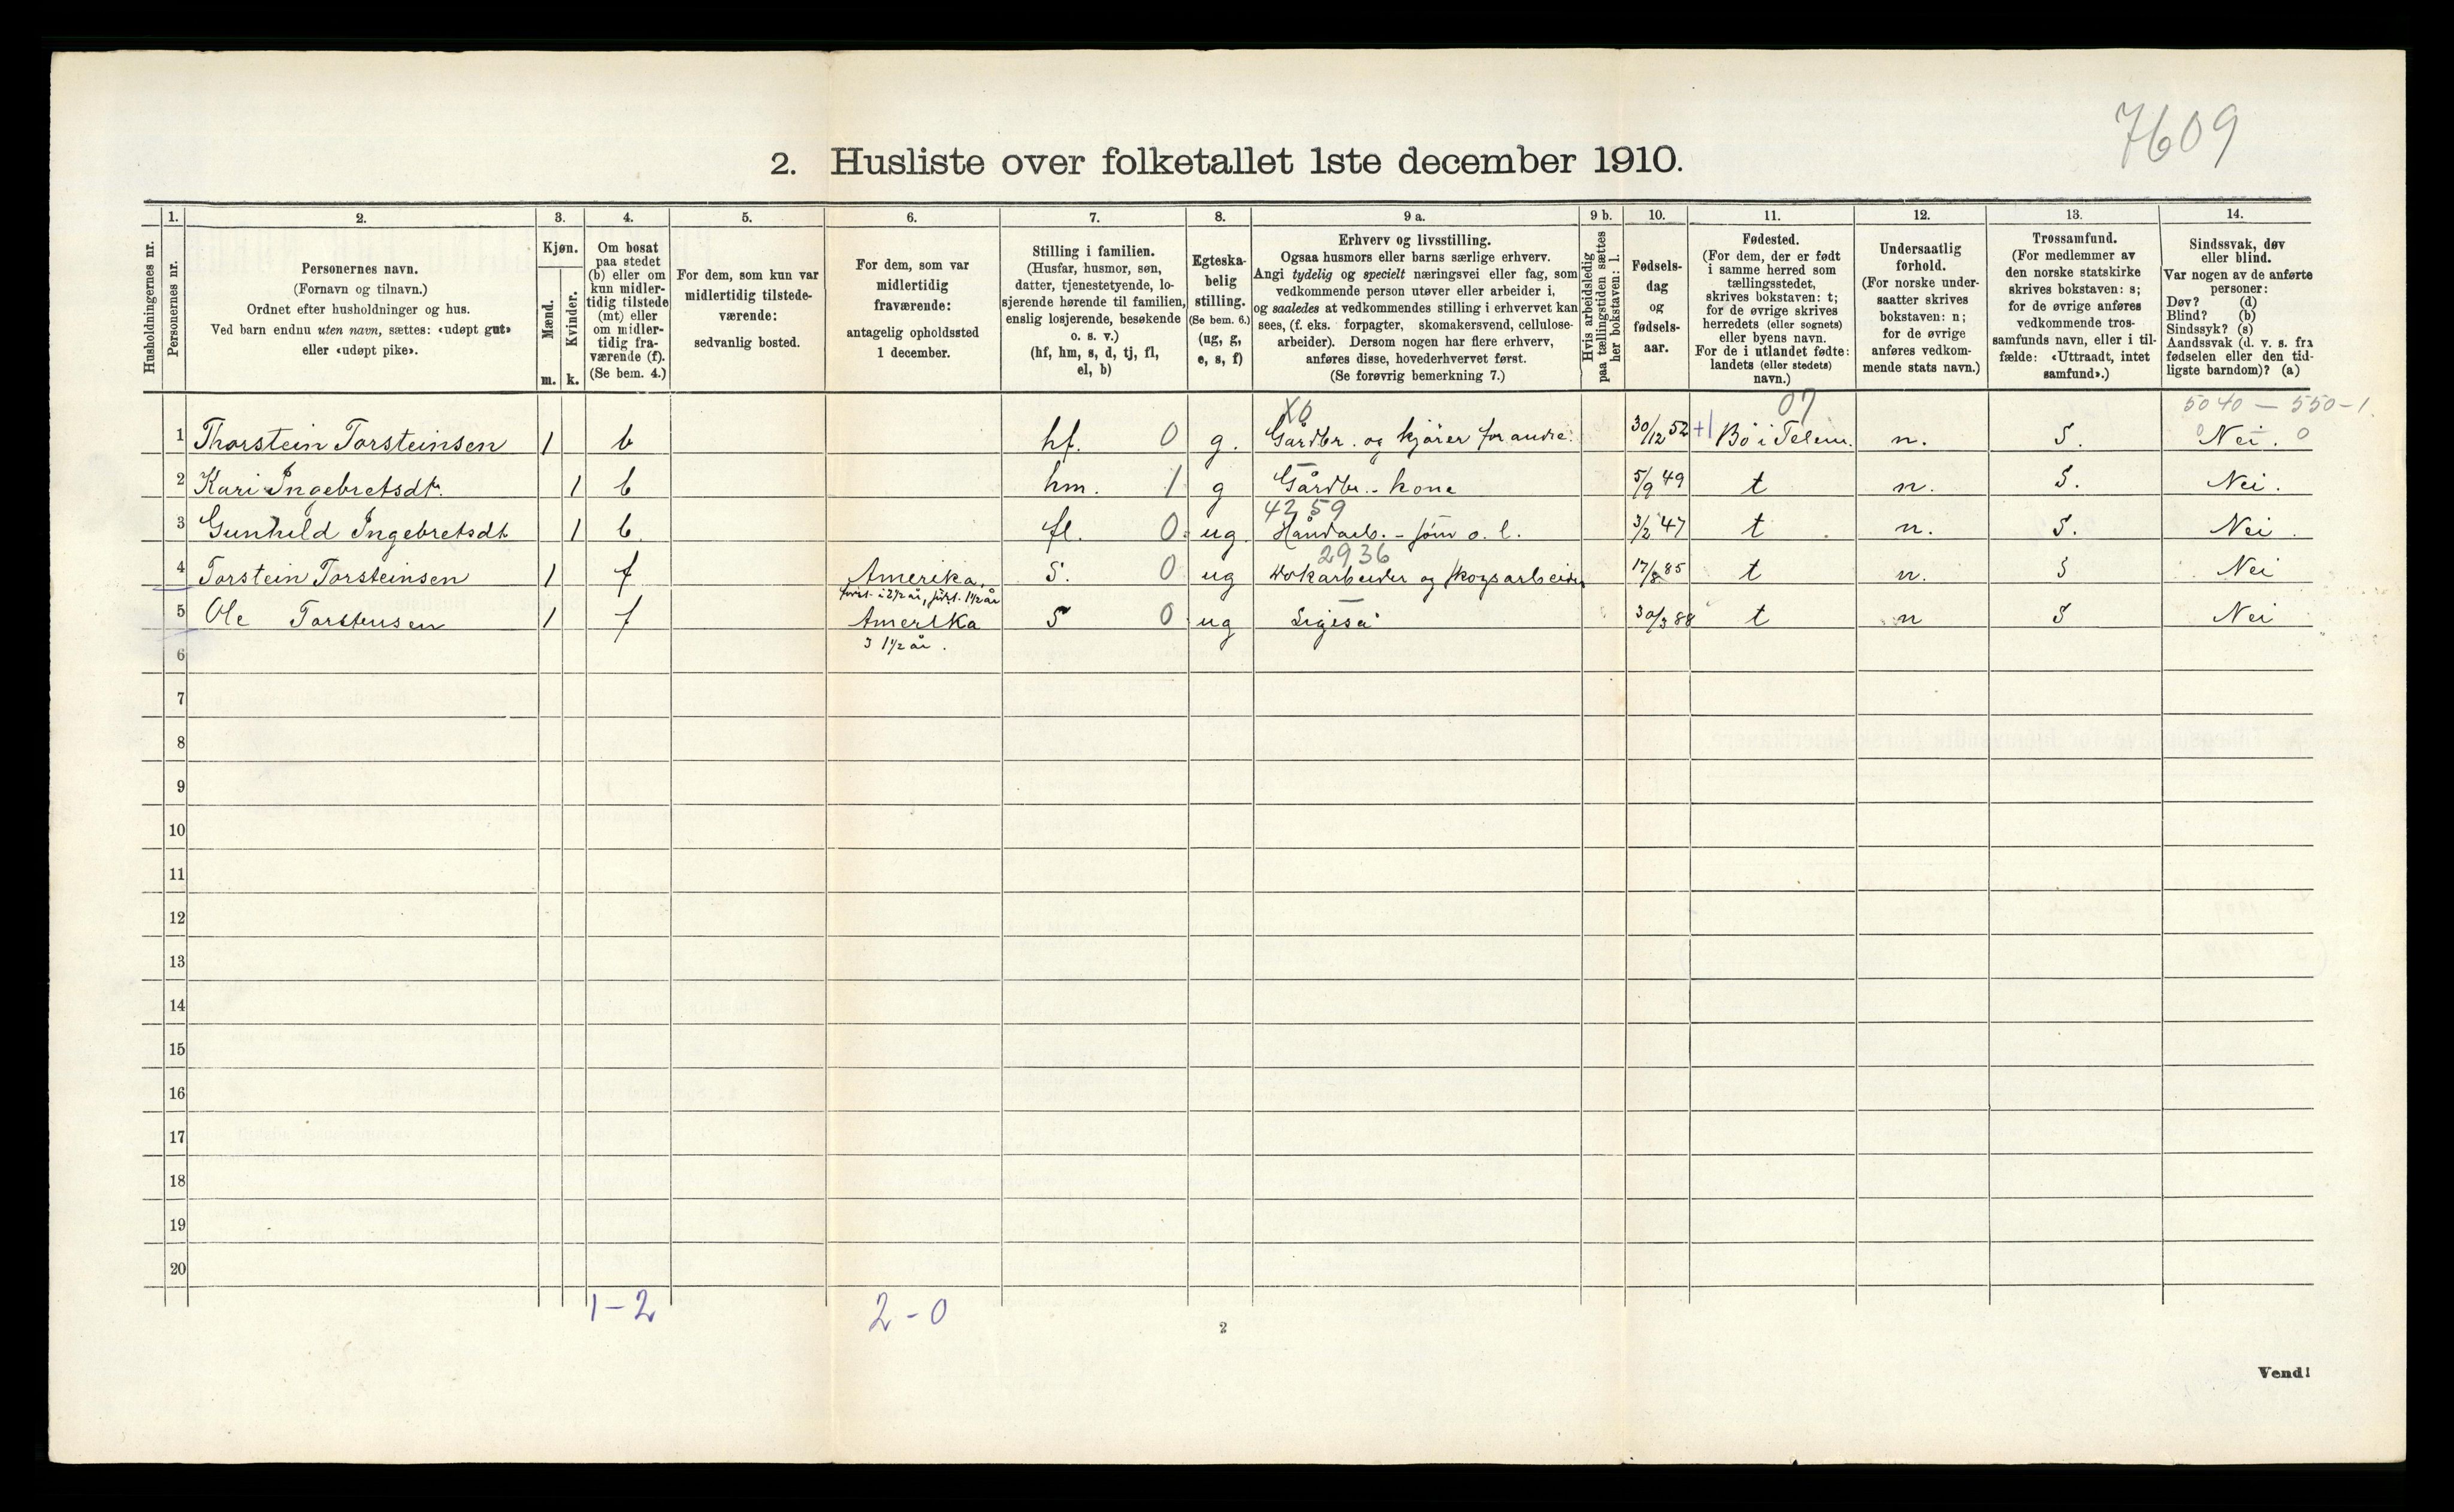 7609
2. Husliste over folketallet 1ste december 1910.
Husholdningernes nr.
1.
Personernes nr.
2.
Personernes navn.
(Fornavn og tilnavn.)
Ordnet efter husholdninger og hus.
Ved barn endnu uten navn, sættes: «udøpt gut»
eller «udøpt pike».
3.
Kjøn.
Mænd.
Kvinder.
m. k.
4.
Om bosat
paa stedet
(b) eller om
kun midler-
tidig tilstede
(mt) eller
om midler-
tidig fra-
værende (f).
(Se bem. 4.)
5.
For dem, som kun var
midlertidig tilstede-
værende:
sedvanlig bosted.
6.
For dem, som var
midlertidig
fraværende:
antagelig opholdssted
1 december.
7.
Stilling i familien.
(Husfar, husmor, søn,
datter, tjenestetyende, lo-
sjerende hørende til familien,
enslig losjerende, besøkende
o. s. v.)
(hf, hm, s, d, tj, fl,
el, b)
8.
Egteska-
belig
stilling.
(Se bem. 6.)
(ug, g,
e, s, f)
9 a.
Erhverv og livsstilling.
Ogsaa husmors eller barns særlige erhverv.
Angi tydelig og specielt næringsvei eller fag, som
vedkommende person utøver eller arbeider i,
og saaledes at vedkommendes stilling i erhvervet kan
sees, (f. eks. forpagter, skomakersvend, cellulose-
arbeider). Dersom nogen har flere erhverv,
anføres disse, hovederhvervet først.
(Se forøvrig bemerkning 7.)
9 b.
Hvis arbeidsledig
paa tællingstiden sættes
her bokstaven: l.
10.
Fødsels-
dag
og
fødsels-
aar.
11.
Fødested.
(For dem, der er født
i samme herred som
tællingsstedet,
skrives bokstaven: t;
for de øvrige skrives
herredets (eller sognets)
eller byens navn.
For de i utlandet fødte:
landets (eller stedets)
navn.)
12.
Undersaatlig
forhold.
(For norske under-
saatter skrives
bokstaven: n;
for de øvrige
anføres vedkom-
mende stats navn.)
13.
Trossamfund.
(For medlemmer av
den norske statskirke
skrives bokstaven: s;
for de øvrige anføres
vedkommende tros-
samfunds navn, eller i til-
fælde: «Uttraadt, intet
samfund».)
14.
Sindssvak, døv
eller blind.
Var nogen av de anførte
personer:
Døv? (d)
Blind? (b)
Sindssyk? (s)
Aandssvak (d. v. s. fra
fødselen eller den tid-
ligste barndom)? (a)
X6 07 5040 — 550-1.
1 Thorstein Torsteinsen 1 b hf. 0 g. Gårdbr. og kjører for andre. 30/12 52 +1 Bø i Telem. n. S. 0 Nei. 0
2 Kari Ingebretsdtr. 1 b hm. 1 g Gårdbr. - kone 5/9 49 t n. S. Nei.
4259
3 Gunhild Ingebretsdt 1 b fl. 0 ug. Håndarb. - søm o. l. 3/2 47 t n. S. Nei.
2936
4 Torstein Torsteinsen 1 f Amerika. S. 0 ug Dokarbeider og skogsarbeider 17/8 85 t n. S Nei
i 2½ år, 1½ år
5 Ole Torstensen 1 f Amerika S 0 ug Ligeså 30/3 88 t n S Nei
I 1½ år.
6
7
8
9
10
11
12
13
14
15
16
17
18
19
20
1-2 2-0
2
Vend!